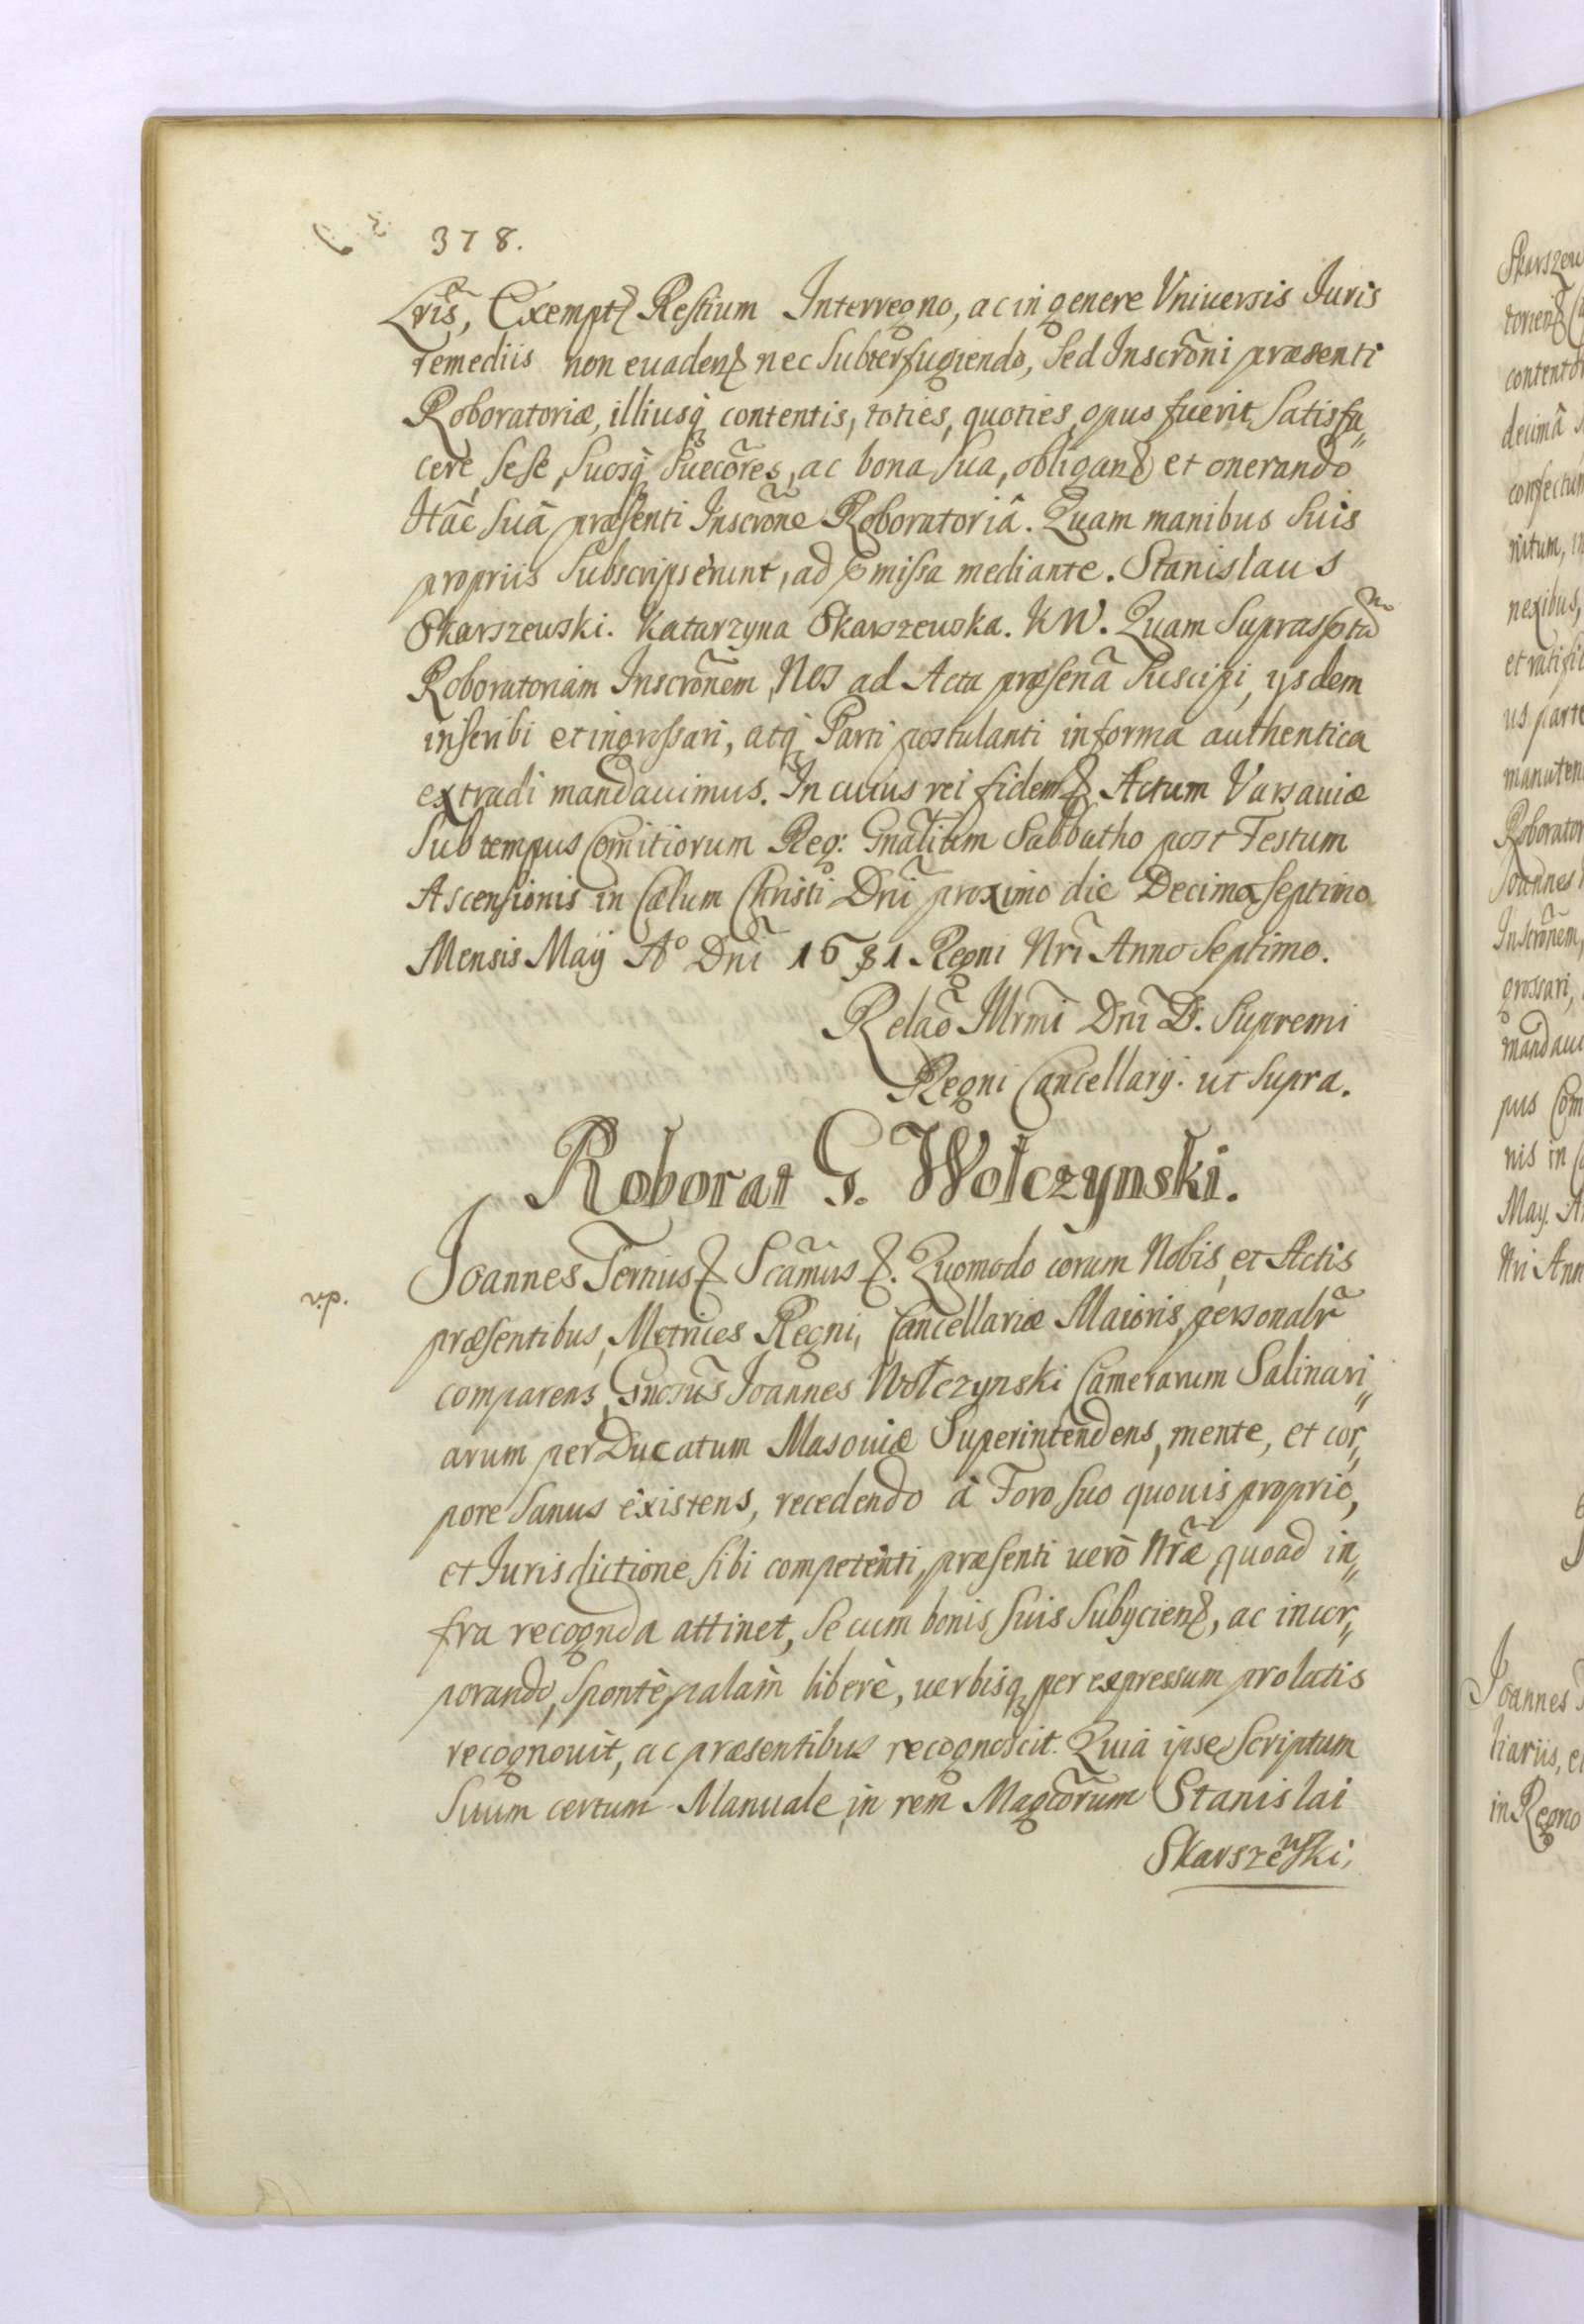 378.
Lris, Exempt Restium Interregno, ac in genere Vniuersis Iuris
remediis non euaden nec subterfugiendo, sed Inscrõni præsenti
Roboratoriæ, illiusq contentis, toties, quoties, opus fuerit satisfa„
cere, sese, suosq suecõres, ac bona sua, obligan et onerando
Hac suâ præsenti Inscrõne Roboratoriâ. Quam manibus suis
propriis subscripserunt, ad pmissa mediante. Stanislaus
Skarszewski. Katarzyna Skarszewska. KW. Quam suprasptã
Roboratoriam Inscrõnem, Nos ad Acta præsenã suscipi, ysdem
inseribi et ingrossari, atq Parti postulanti in forma authentica
extradi mandauimus. In cuius rei fidem Actum Varsauiæ
Sub tempus Comitiorum Reg: Gnalium Sabbatho post Festum
Ascensionis in Cœlum Christi Dni proximo die Decima septimo
Mensis Maÿ Aº Dni 1681 Regni Nri Anno septimo.
Relaõ Illrmi Dni D. Supremi
Regni Cancellarÿ. ut supra.
Roborat G. Wołczynski.
Joannes Tertius Scamus. Quomodo coram Nobis, et Actis
præsentibus, Metrices Regni, Cancellariæ Maioris, personalr
comparens, Gnosus Joannes Wołczynski Camerarum Salinari„
arum per Ducatum Masouiæ Superintendens, mente, et cor„
pore sanus existens, recedendo à Foro suo quouis proprio,
et Iurisdictione sibi competenti, præsenti uerò Nræ quoad in„
fra recognda attinet, se cum bonis suis subÿcien, ac incor„
porando, spontè, palàm liberè, uerbisq per expressum prolatis
recognouit, ac præsentibus recognoscit. Quia ipse Scriptum
Suum certum Manuale in rem Magcorum Stanislai
Skarszewski,